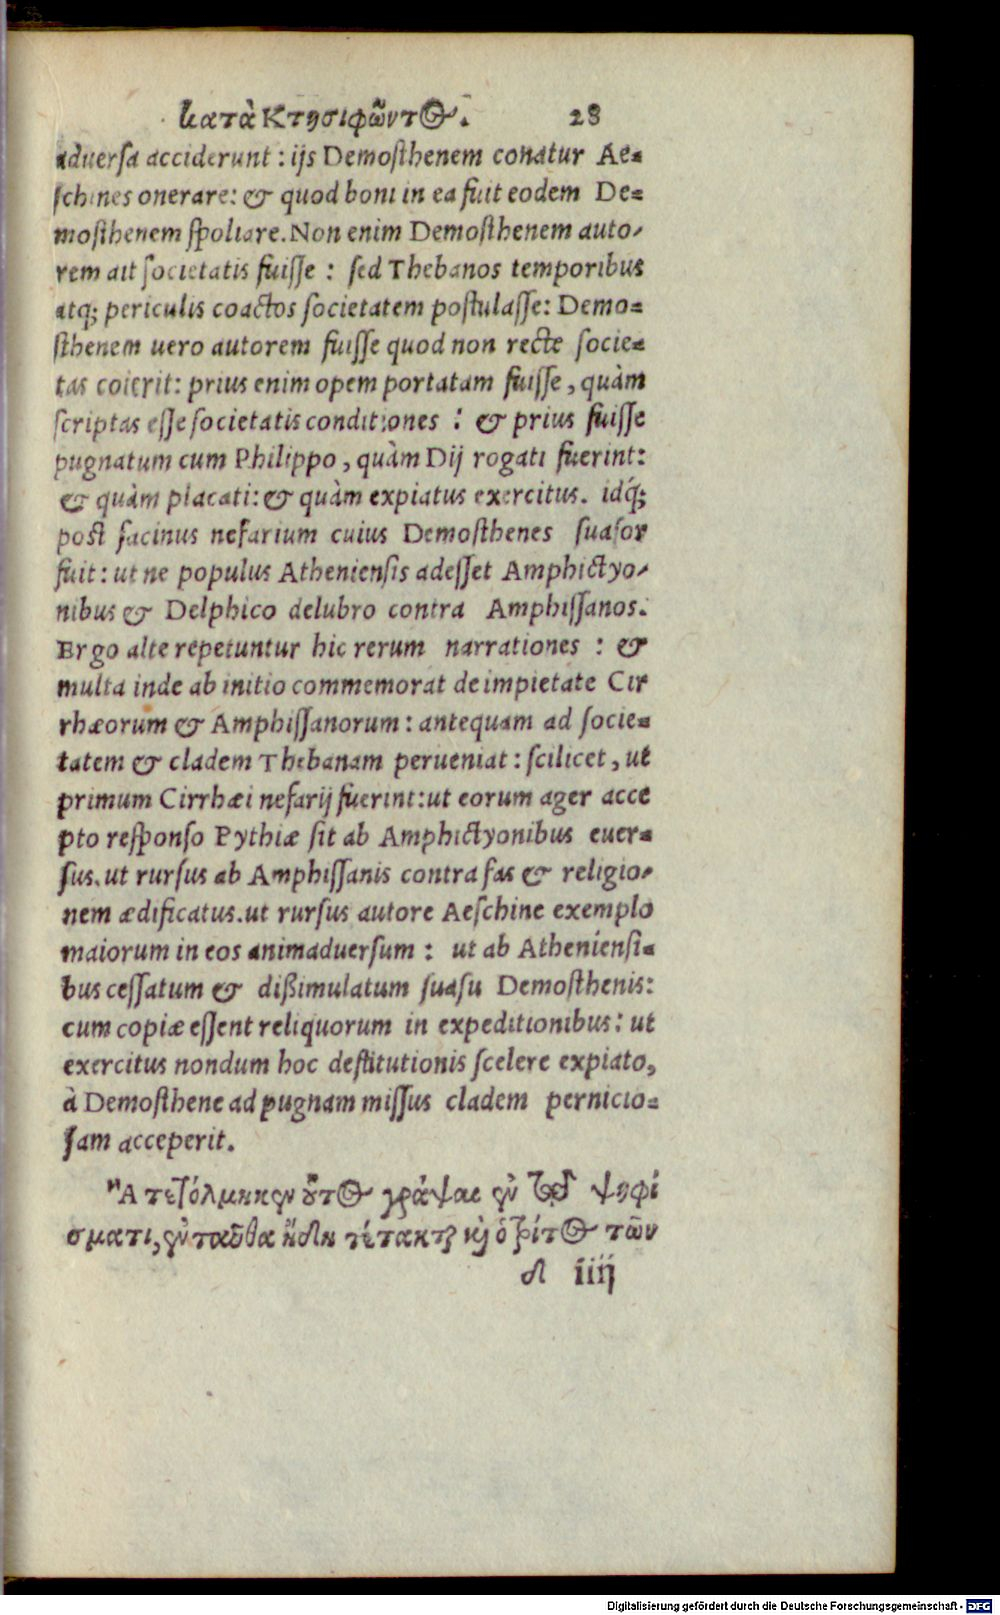 κατὰ Κτησιφῶντος. 28
aduersa acciderunt: ijs Demosthenem conatur Ae=
schines onerare: & quod boni in ea fuit eodem De=
mosthenem spoliare. Non enim Demosthenem auto-
rem ait societatis fuisse: sed Thebanos temporibus
atq; periculis coactos societatem postulasse: Demo=
sthenem uero autorem fuisse quod non recte socie=
tas coierit: prius enim opem portatam fuisse, quàm
scriptas esse societatis conditiones: & prius fuisse
pugnatum cum Philippo, quàm Dij rogati fuerint:
& quàm placati: & quàm expiatus exercitus. idq́;
post facinus nefarium cuius Demosthenes suasor
fuit: ut ne populus Atheniensis adesset Amphictyo-
nibus & Delphico delubro contra Amphissanos.
Ergo alte repetuntur hic rerum narrationes: &
multa inde ab initio commemorat de impietate Cir
rhæorum & Amphissanorum: antequam ad socie=
tatem & cladem Thebanam perueniat: scilicet, ut
primum Cirrhæi nefarij fuerint: ut eorum ager acce
pto responso Pythiæ sit ab Amphictyonibus euer=
sus. ut rursus ab Amphissanis contra fas & religio-
nem ædificatus. ut rursus autore Aeschine exemplo
maiorum in eos animaduersum: ut ab Atheniensi=
bus cessatum & dißimulatum suasu Demosthenis:
cum copiæ essent reliquorum in expeditionibus: ut
exercitus nondum hoc destitutionis scelere expiato,
à Demosthene ad pugnam missus cladem pernicio=
sam acceperit.
Ἃ τετόλμηκεν οὗτος γράψαι ἐν τῷδε ψηφί
σματι, ἐνταῦθα ἤδη τέτακται καὶ ὁ τρίτος τῶν
d iiij
Digitalisierung gefördert durch die Deutsche Forschungsgemeinschaft - DFG